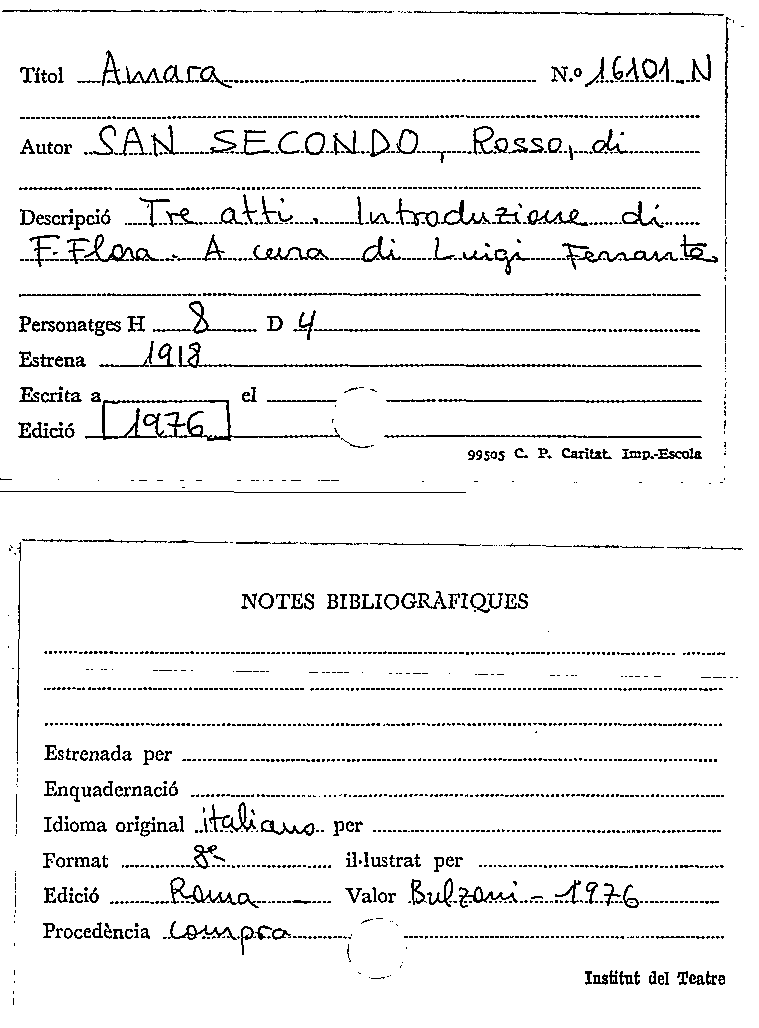 Títol Amara N.º 16101 N
Autor SAN SECONDO, Rosso, di
Descripció Tre atti. Introduzione di
F. Flora. A cura di Luigi Ferrante
Personatges H 8 D 4
Estrena 1918
Escrita a el
Edició 1976
99505 C. P. Caritat. Imp.-Escola
NOTES BIBLIOGRÀFIQUES
Estrenada per
Enquadernació
Idioma original italiano per
Format 8è il·lustrat per
Edició Roma Valor Bulzoni - 1976
Procedència compra
Institut del Teatre